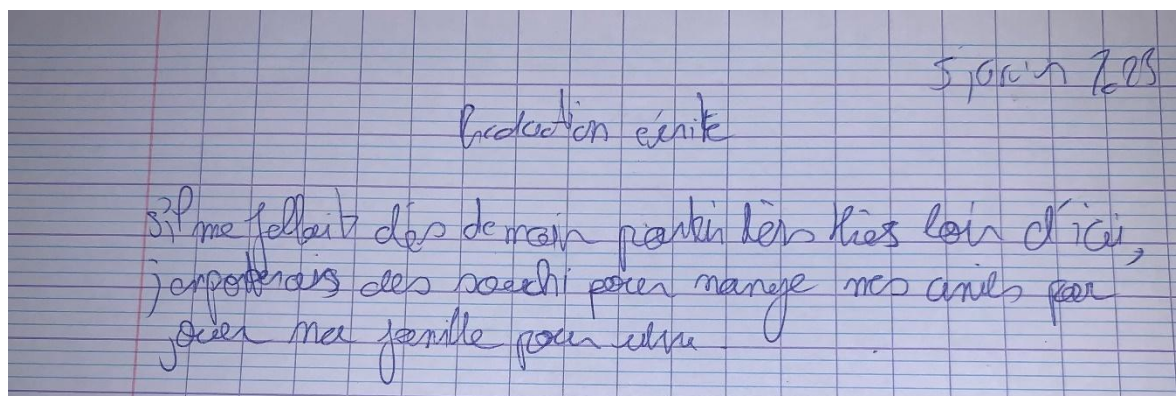 5 juin 2.03
Production écrite
s'il me fallait dès demain partir lèin très loin d'ici,
j'enporterais des souchi pour mange mes amies pour
jouer ma famille pour vivre